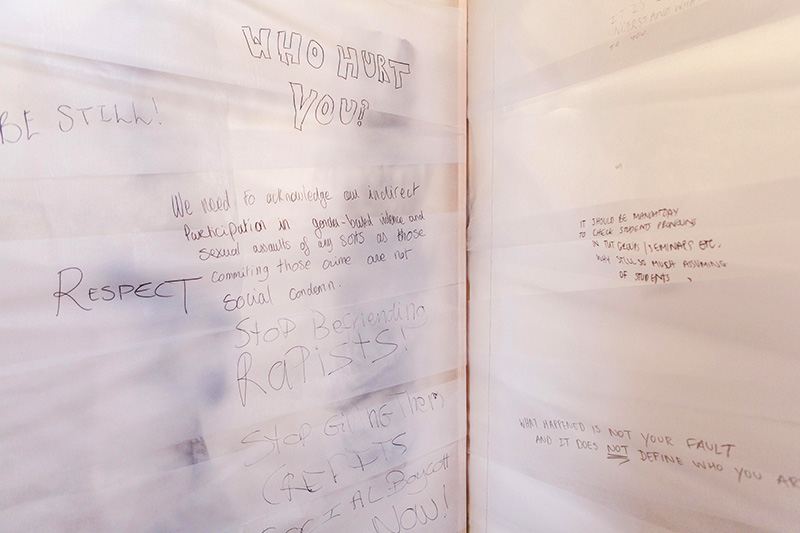 WHO HURT
YOU?
BE STILL!
We need to acknowledge our indirect
Participation in gender-based violence and
sexual assaults of any sorts as those
commiting those crime are not
social condemn.
RESPECT
Stop Befriending
Rapists!
Stop Giving Them
SOCIAL Boycott
NOW!
IT SHOULD BE MANDATORY
TO CHECK STUDENTS PRONOUNS
IN TUT GROUPS / SEMINARS ETC.
WHY STILL SO MUCH ASSUMING
OF STUDENTS
WHAT HAPPENED IS NOT YOUR FAULT
AND IT DOES NOT DEFINE WHO YOU AR